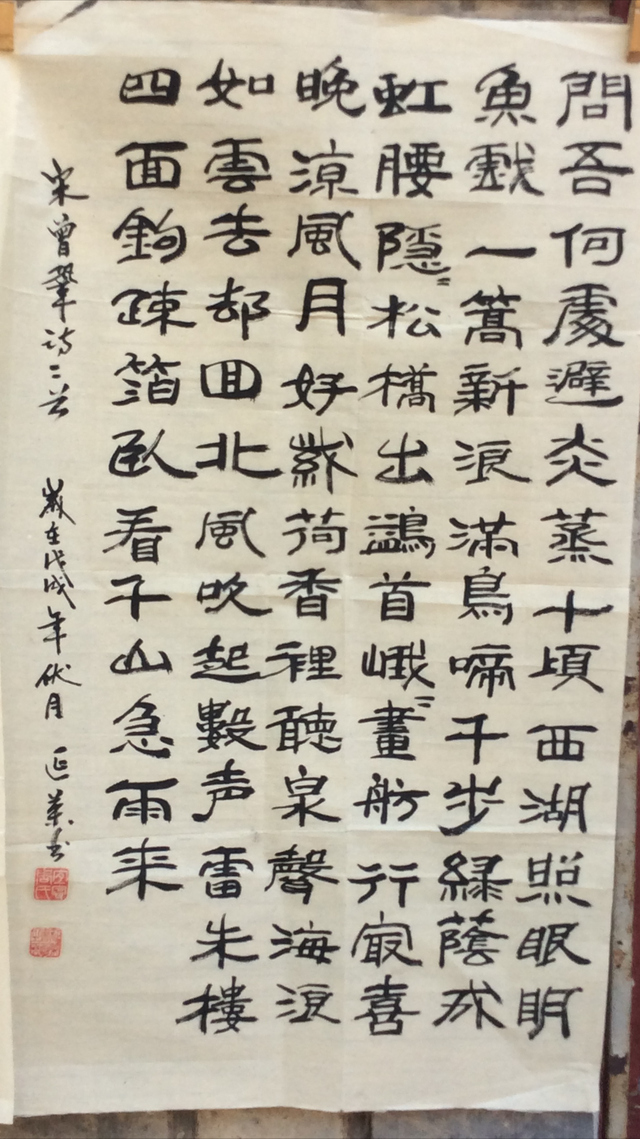 問吾何處避炎蒸十頃西湖照眼明
魚戲一篙新浪滿鳥啼千步緑蔭成
虹腰隱〻松橋出鷁首峨〻畫舫行㝡喜
晚凉風月好紫荷香裡聽泉聲海浪
如雲去却回北風吹起數声雷朱樓
四面鉤疎箔臥看千山急雨来
宋曾鞏诗二首 歲在戊戌年伏月 延书